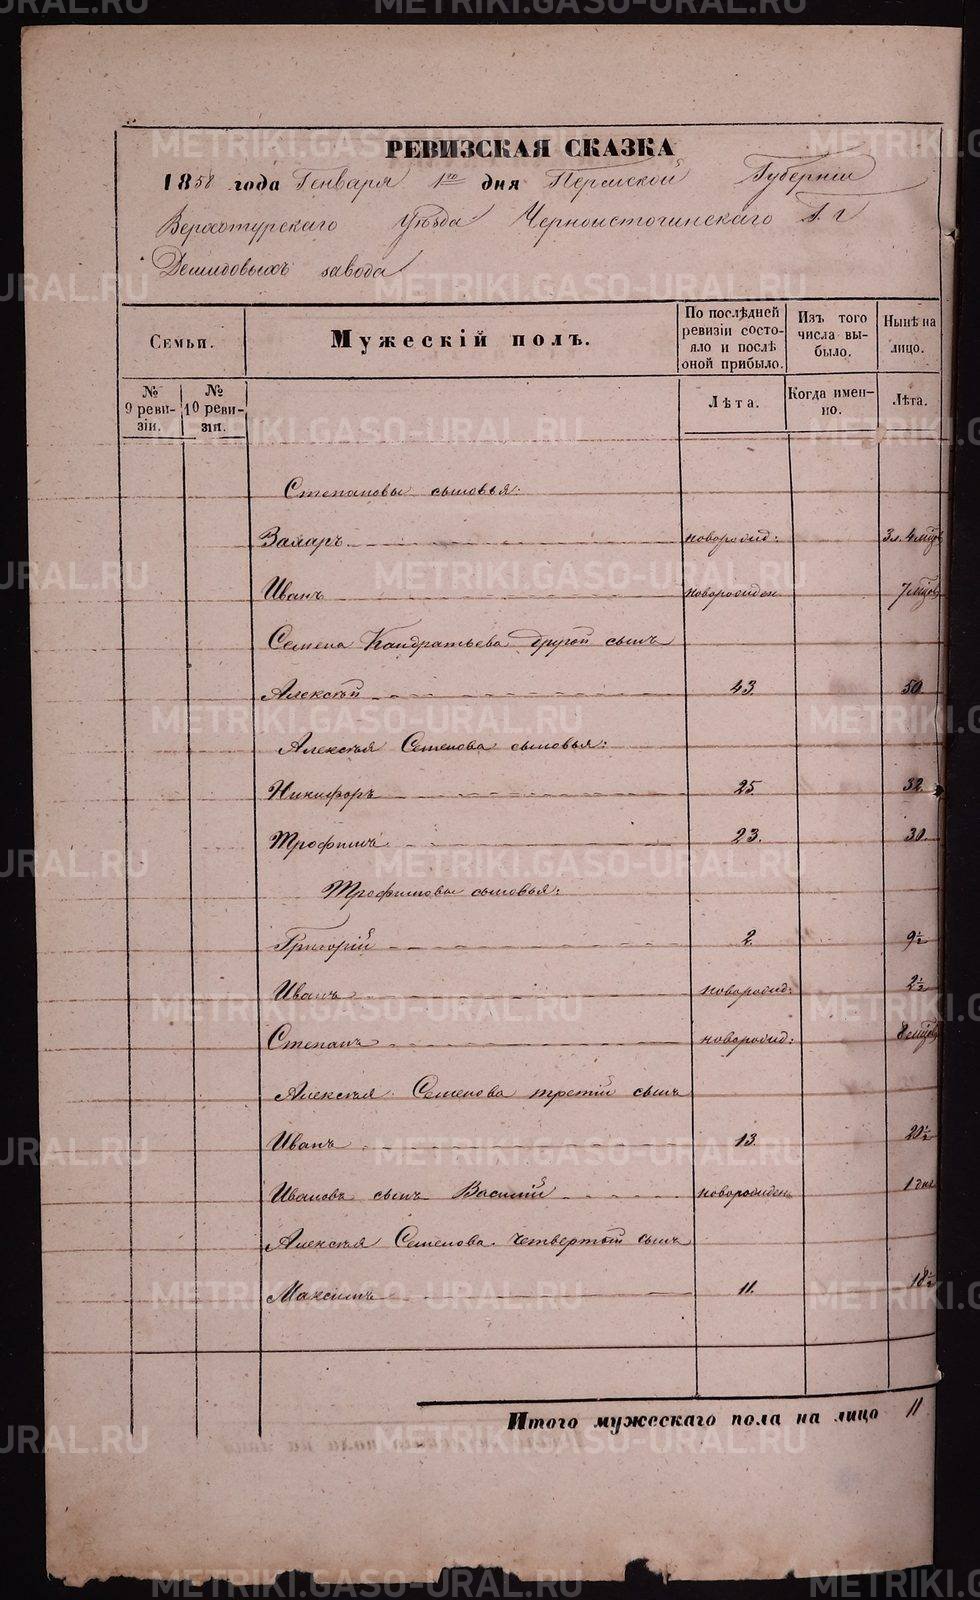 РЕВИЗСКАЯ СКАЗКА
1858 года Генваря 1го дня Пермской Губернiи
Верхотурскаго Уѣзда Черноисточинскаго Г. г.
Демидовыхъ завода
Семьи.
Мужескiй полъ.
По послѣдней ревизiи состояло и послѣ оной прибыло.
Изъ того числа выбыло.
Нынѣ на лицо.
№ 9 ревизiи.
№ 10 ревизiи.
Лѣта.
Когда именно.
Лѣта.
Степановы сыновья:
Захаръ новорожд: 3 л. 4 мѣсц
Иванъ новорожден 7 мѣсцов
Семена Кандратьева другой сынъ
Алексѣй 43. 50
Алексѣя Семенова сыновья:
Никифоръ 25. 32
Трофимъ 23. 30
Трофимовы сыновья:
Григорiй 2. 9½
Иванъ новорожд: 2½
Степанъ новорожд: 8 мѣсцов
Алексѣя Семенова третiй сынъ
Иванъ 13 20½
Ивановъ сынъ Василiй новорожден 1 дня
Алексѣя Семенова четвертый сынъ
Максимъ 11. 18½
Итого мужескаго пола на лицо 11
METRIKI.GASO-URAL.RU